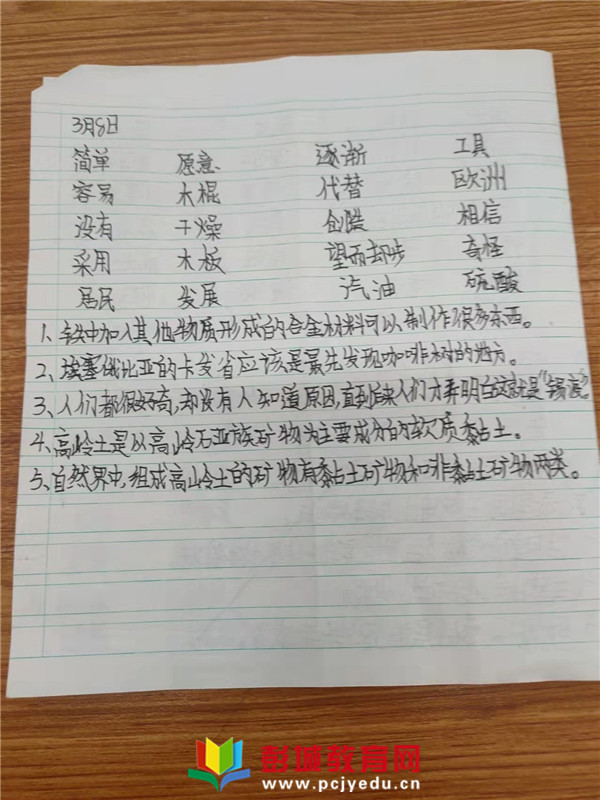 3月8日
简单 愿意 逐渐 工具
容易 木棍 代替 欧洲
没有 干燥 创造 相信
采用 木板 望而却步 奇怪
居民 发展 汽油 硫酸
1、铁中加入其他物质形成的合金材料可以制作很多东西。
2、埃塞俄比亚的卡发省应该是最先发现咖啡树的地方。
3、人们都很好奇,却没有人知道原因,直到后来人们才弄明白这就是“锡疫”。
4、高岭土是以高岭石亚族矿物为主要成分的软质黏土。
5、自然界中,组成高岭土的矿物有黏土矿物和非黏土矿物两类。
彭城教育网
www.pcjyedu.cn